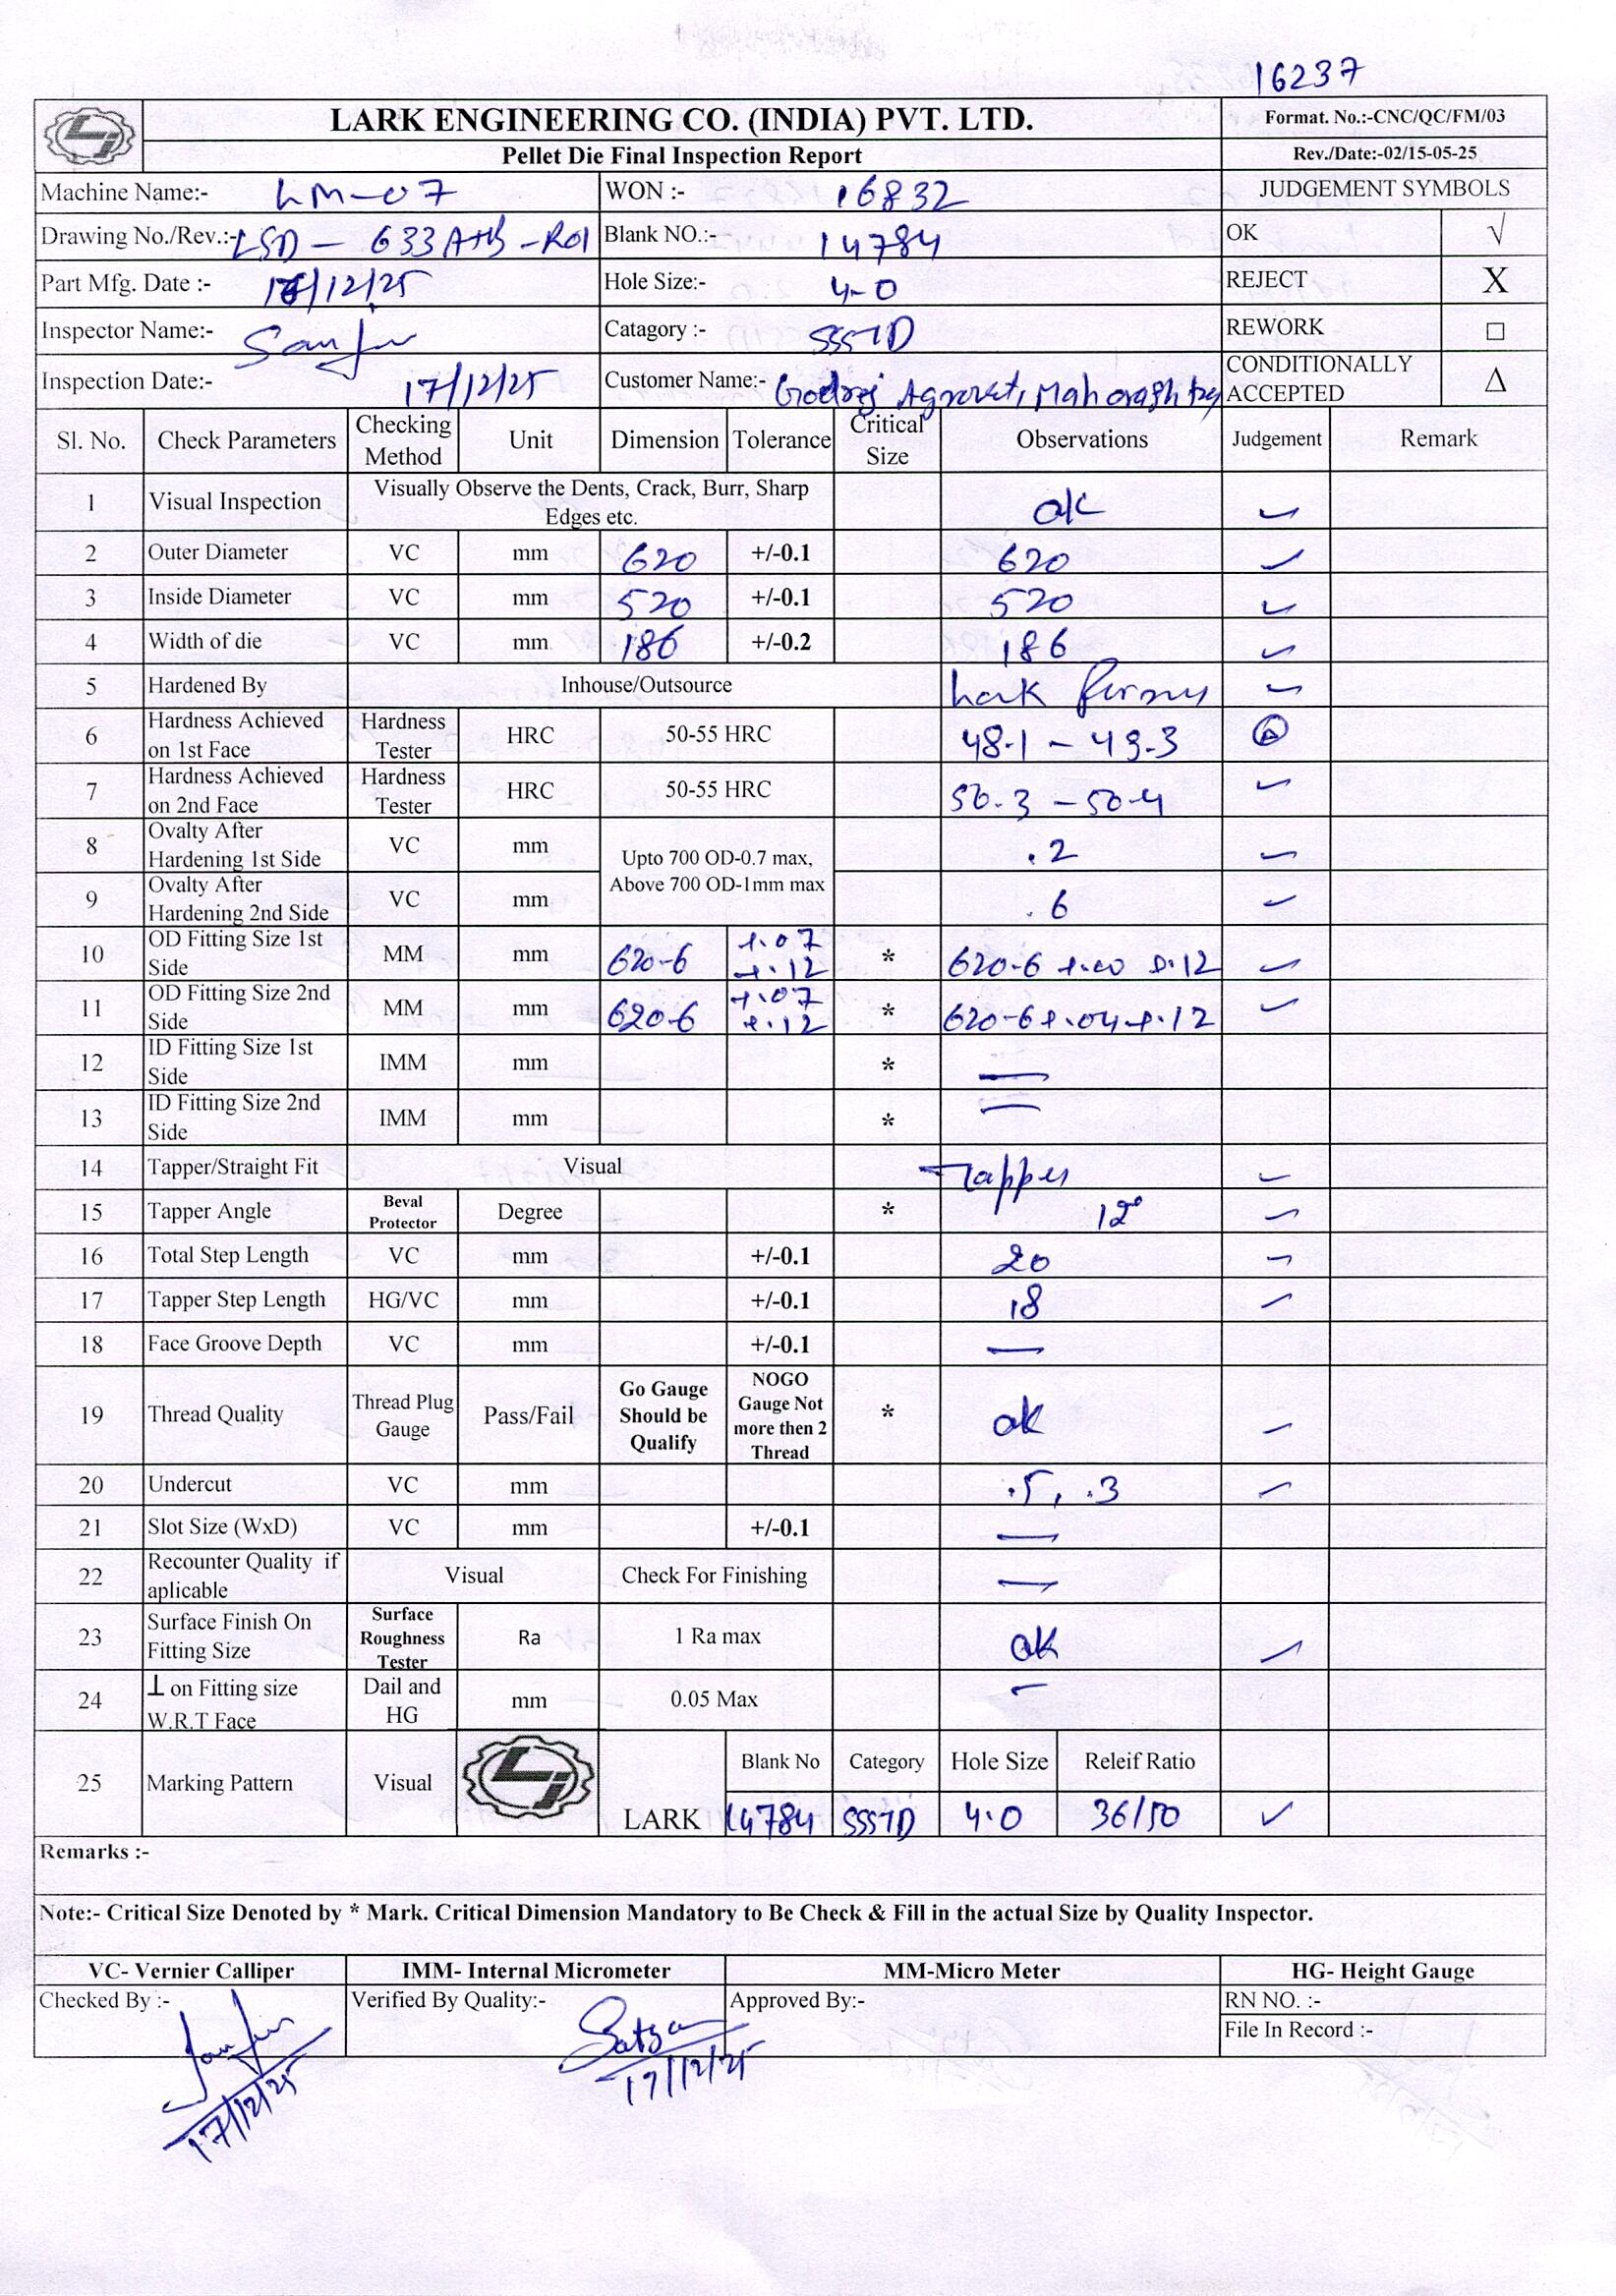 16237
LARK ENGINEERING CO. (INDIA) PVT. LTD.
Format. No.:-CNC/QC/FM/03
Pellet Die Final Inspection Report
Rev./Date:-02/15-05-25
Machine Name:- LM-07 WON :- 16832 JUDGEMENT SYMBOLS
Drawing No./Rev.:- LSD - 633A+B-R01 Blank NO.:- 14784 OK √
Part Mfg. Date :- /12/25 Hole Size:- 4.0 REJECT X
Inspector Name:- Catagory :- SSSTD REWORK □
Inspection Date:- 17/12/25 Customer Name:- Godrej Agrovet, Maharashtra CONDITIONALLY ACCEPTED Δ
Sl. No. Check Parameters Checking Method Unit Dimension Tolerance Critical Size Observations Judgement Remark
1 Visual Inspection Visually Observe the Dents, Crack, Burr, Sharp Edges etc. ok ✓
2 Outer Diameter VC mm 620 +/-0.1 620 ✓
3 Inside Diameter VC mm 520 +/-0.1 520 ✓
4 Width of die VC mm 186 +/-0.2 186 ✓
5 Hardened By Inhouse/Outsource Lark ✓
6 Hardness Achieved on 1st Face Hardness Tester HRC 50-55 HRC 48.1 - 49.3
7 Hardness Achieved on 2nd Face Hardness Tester HRC 50-55 HRC 50.3 - 50.4 ✓
8 Ovalty After Hardening 1st Side VC mm Upto 700 OD-0.7 max, Above 700 OD-1mm max .2 ✓
9 Ovalty After Hardening 2nd Side VC mm .6 ✓
10 OD Fitting Size 1st Side MM mm 620.6 +.07 +.12 * 620.6 ✓
11 OD Fitting Size 2nd Side MM mm 620.6 +.07 +.12 * 620.6 +.04 +.12 ✓
12 ID Fitting Size 1st Side IMM mm * —
13 ID Fitting Size 2nd Side IMM mm * —
14 Tapper/Straight Fit Visual Tapper ✓
15 Tapper Angle Beval Protector Degree * 12° ✓
16 Total Step Length VC mm +/-0.1 20 ✓
17 Tapper Step Length HG/VC mm +/-0.1 18 ✓
18 Face Groove Depth VC mm +/-0.1 —
19 Thread Quality Thread Plug Gauge Pass/Fail Go Gauge Should be Qualify NOGO Gauge Not more then 2 Thread * ok ✓
20 Undercut VC mm .5, .3 ✓
21 Slot Size (WxD) VC mm +/-0.1 —
22 Recounter Quality if aplicable Visual Check For Finishing —
23 Surface Finish On Fitting Size Surface Roughness Tester Ra 1 Ra max ok ✓
24 ⊥ on Fitting size W.R.T Face Dail and HG mm 0.05 Max —
25 Marking Pattern Visual LARK Blank No Category Hole Size Releif Ratio
14784 SSSTD 4.0 36/50 ✓
Remarks :-
Note:- Critical Size Denoted by * Mark. Critical Dimension Mandatory to Be Check & Fill in the actual Size by Quality Inspector.
VC- Vernier Calliper IMM- Internal Micrometer MM-Micro Meter HG- Height Gauge
Checked By :- Verified By Quality:- Approved By:- RN NO. :-
File In Record :-
17/12/25 17/12/25